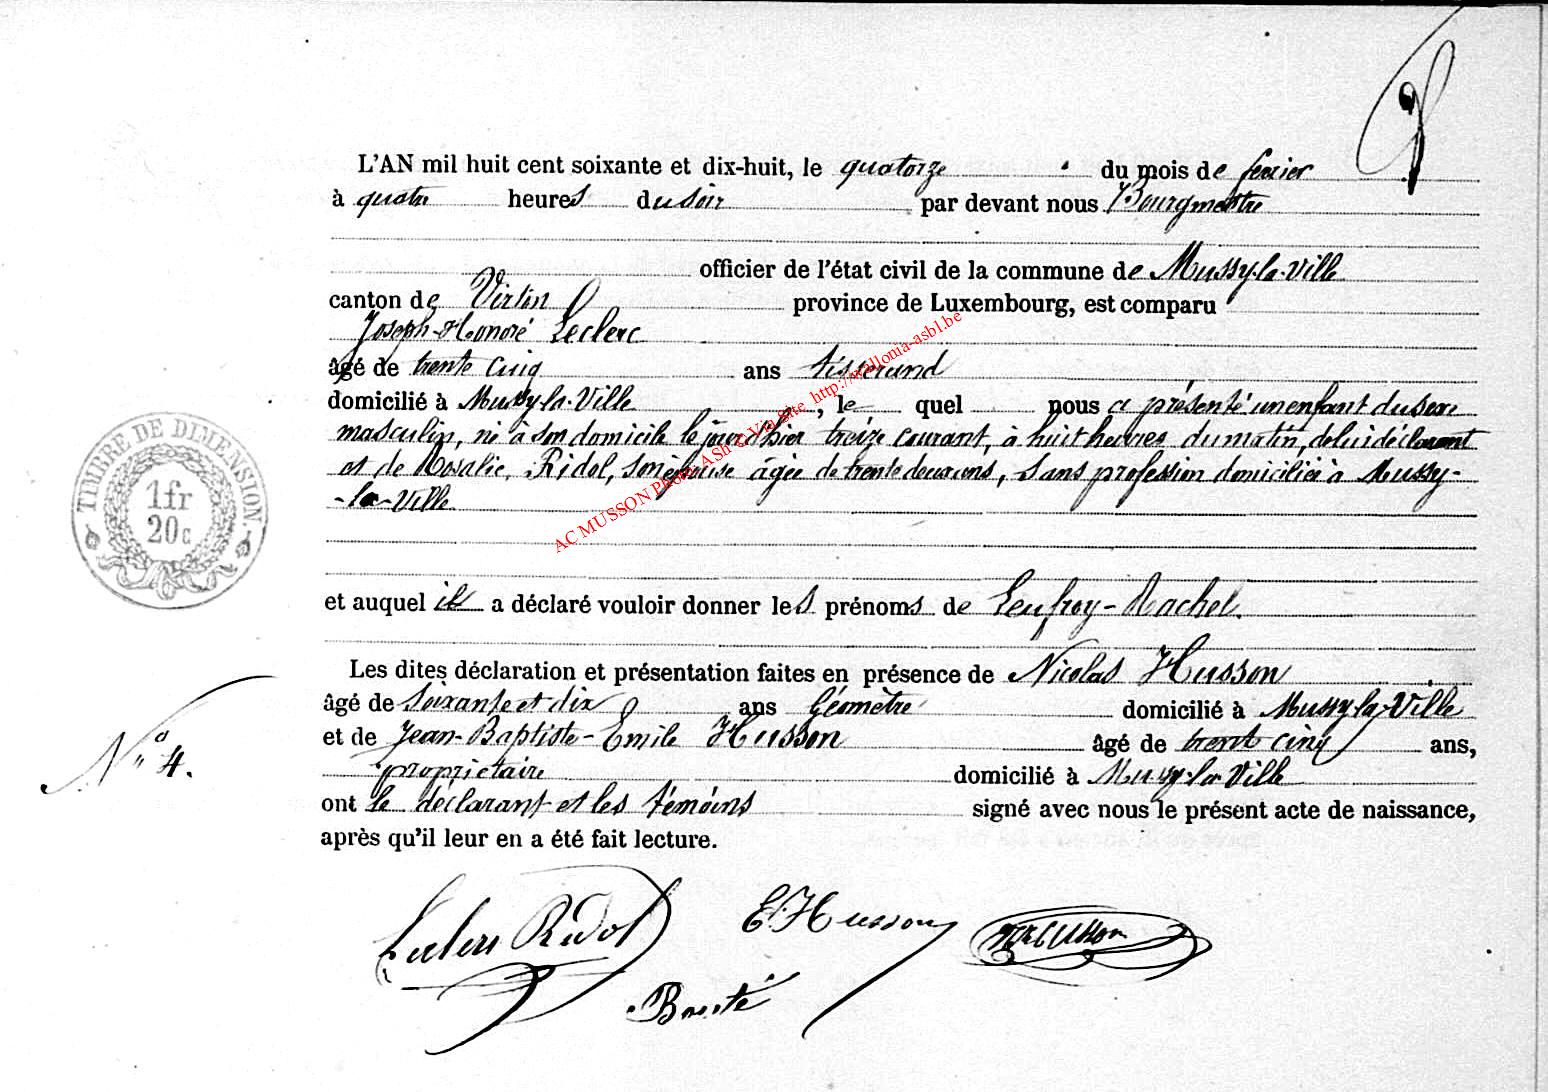 L'AN mil huit cent soixante et dix-huit, le quatorze du mois de fevrier
à quatre heures du soir par devant nous Bourgmestre
officier de l'état civil de la commune de Mussy-la-Ville
canton de Virton province de Luxembourg, est comparu
Joseph-Honoré Leclerc
âgé de trente cinq ans tisserand
domicilié à Mussy-la-Ville, le quel nous a présenté un enfant du sexe
masculin, né à son domicile le jour d'hier treize courant, à huit heures du matin, de lui déclarant
et de Rosalie Ridol, son épouse âgée de trente deux ans, sans profession domiciliée à Mussy-
-la-Ville
et auquel il a déclaré vouloir donner les prénoms de Leufroy-Rachel.
Les dites déclaration et présentation faites en présence de Nicolas Husson
âgé de soixante et dix ans Géomètre domicilié à Mussy-la-Ville
et de Jean-Baptiste-Emile Husson âgé de trente cinq ans,
propriétaire domicilié à Mussy-la-Ville
ont le déclarant et les témoins signé avec nous le présent acte de naissance,
après qu'il leur en a été fait lecture.
Leclerc Ridol E. Husson Husson
Bouté
N° 4.
TIMBRE DE DIMENSION.
1fr
20c
AC MUSSON Photo ASBL Via Site http://wallonia-asbl.be